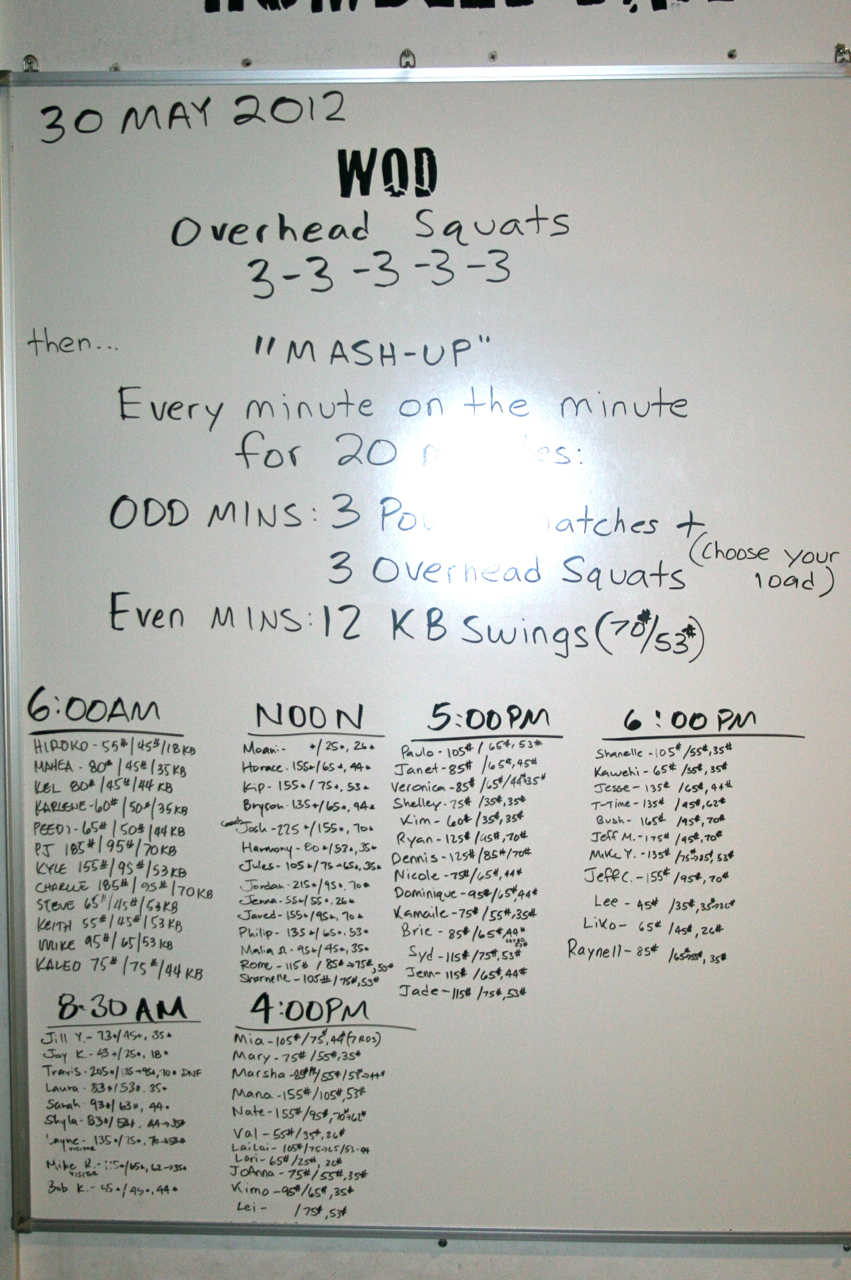 30 MAY 2012
WOD
Overhead Squats
3-3-3-3-3
then... "MASH-UP"
Every minute on the minute
for 20
ODD MINS: 3 +
3 Overhead Squats (Choose your load)
Even MINS: 12 KB Swings (70#/53#)
6:00AM
HIROKO - 55#/45#/18KB
MAHEA - 80#/45#/35KB
KEL 80#/45#/44KB
KARLENE - 60#/50#/35KB
65#/50#/44KB
PJ 185#/95#/70KB
KYLE 155#/95#/53KB
CHARLIE 185#/95#/70KB
STEVE 65#/45#/53KB
KEITH 55#/45#/53KB
MIKE 95#/65/53KB
KALEO 75#/75#/44KB
8:30AM
Jill Y. - 73#/45#, 35#
Joy K. - 43#/25#, 18#
Travis - 205#/135→95#, 70# DNF
Laura - 83#/53#, 35#
Sarah - 93#/63#, 44#
Shyla - 83#/53#, 44→35#
135#/75#, 70→53#
Mike R. - /65#, 62→35#
VISITOR
Bob K. - 55#/45#, 44#
NOON
Moani - #/25#, 26#
Horace - 155#/65#, 44#
Kip - 155#/75#, 53#
Bryson - 135#/65#, 44#
Josh - 225#/155#, 70#
Harmony - 80#/53#, 35#
Jules - 105#/75→65#, 35#
Jordan - 215#/95#, 70#
Jenna - 55#/55#, 26#
Jared - 155#/95#, 70#
Philip - 135#/65#, 53#
Malia R. - 95#/45#, 35#
Rome - 115#/85#→75#, 50#
Sharnelle - 105#/75#, 53#
4:00PM
Mia - 105#/75#, 44# (7RDS)
Mary - 75#/55#, 35#
Marsha - 85#/55#/53→44#
Mana - 155#/105#, 53#
Nate - 155#/95#, 70#→62#
Val - 55#/35#, 26#
LaiLai - 105#/75→65/53-44
Lori - 65#/25#, 26#
JoAnna - 75#/55#, 35#
Kimo - 95#/65#, 35#
Lei - /75#, 53#
5:00PM
Paulo - 105#/65#, 53#
Janet - 85#/65#, 45#
Veronica - 85#/65#/44#35#
Shelley - 75#/35#, 35#
Kim - 60#/35#, 35#
Ryan - 125#/95#, 70#
Dennis - 125#/85#/70#
Nicole - 75#/65#, 44#
Dominique - 95#/65#, 44#
Kamaile - 75#/55#, 35#
Brie - 85#/65#, 44#
Syd - 115#/75#, 53#
Jenn - 115#/65#, 44#
Jade - 115#/75#, 53#
6:00PM
Shanelle - 105#/55#, 35#
Kawehi - 65#/55#, 35#
Jesse - 135#/65#, 44#
T-Time - 135#/95#, 62#
Bush - 165#/95#, 70#
Jeff M. - 175#/95#, 70#
Mike Y. - 135#/75→85#, 53#
Jeff C. - 155#/95#, 70#
Lee - 45#/35#, 35→26#
Liko - 65#/45#, 26#
Raynell - 85#/65→55#, 35#